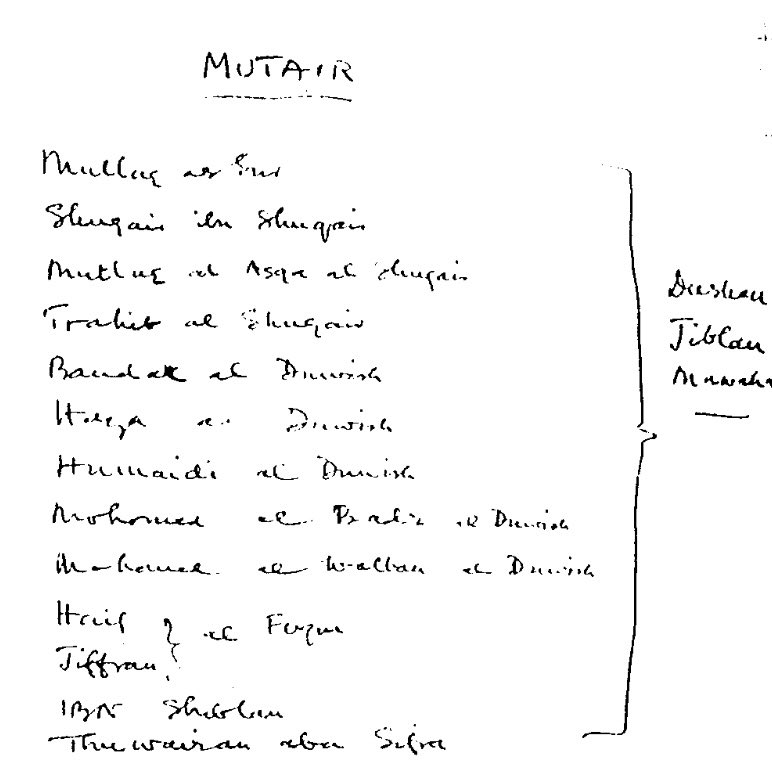 MUTAIR
Mutlaq as Sur
Shuqair ibn Shuqair
Mutluq al Asqa al Shuqair
Trahib al Shuqair
Bandar al Duwish
al Duwish
Humaidi al Duwish
Mohomed al Badr al Duwish
Mohamed al Watban al Duwish
Haif } al Fuqm
Jiffran
IBN Shiblan
Thuwairan abu Sifra
Dushan
Jiblan